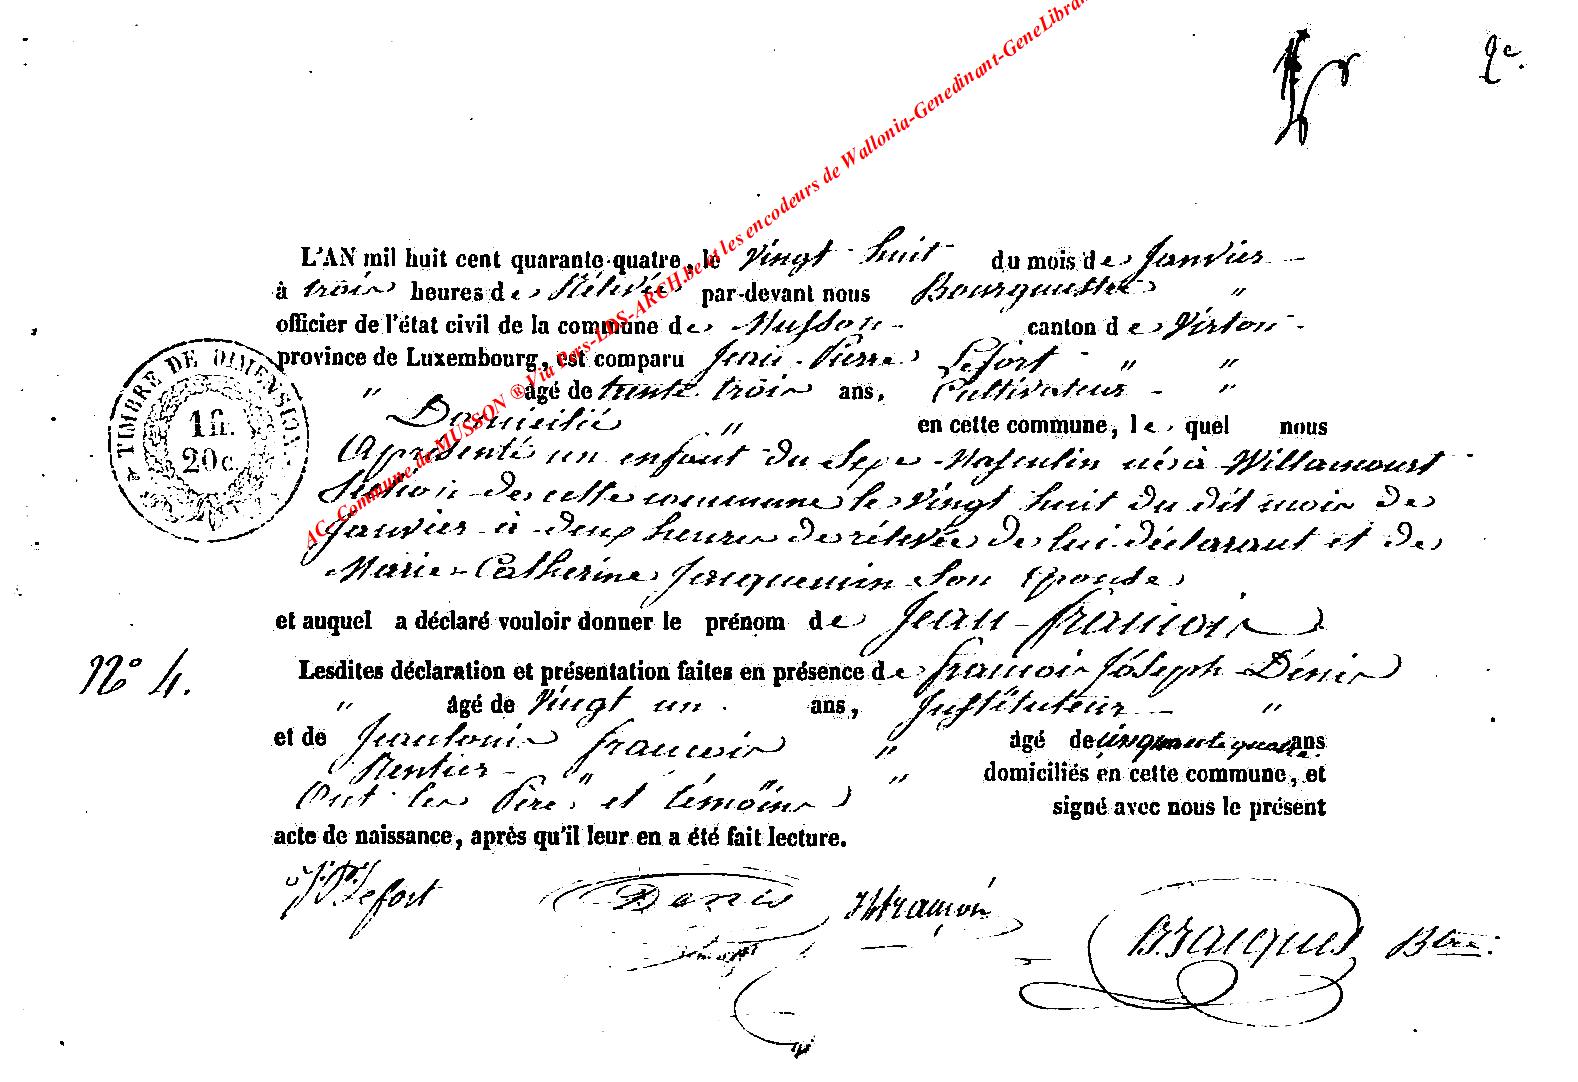 2e.
L'AN mil huit cent quarante-quatre, le Vingt huit du mois de Janvier
à trois heures de Rélevée par-devant nous Bourguemestre "
officier de l'état civil de la commune de Musson canton de Virton
province de Luxembourg, est comparu Jean Pierre Lefort " "
" âgé de trente trois ans, Cultivateur "
Domicilié " en cette commune, le quel nous
A présenté un enfant du Sexe Masculin né à Willancourt
Section de cette commune le Vingt huit du dit mois de
Janvier à deux heures de rélevée de lui déclarant et de
Marie Catherine Jacquemin Son Epouse
et auquel a déclaré vouloir donner le prénom de Jean-françois
N° 4.
Lesdites déclaration et présentation faites en présence de françois Joseph Dénis
" âgé de Vingt un ans, Instituteur "
et de Jeanlouis françois " âgé de cinquante quatre ans
Rentier " " " domiciliés en cette commune, et
Ont les Père et témoins signé avec nous le présent
acte de naissance, après qu'il leur en a été fait lecture.
J. P. Lefort Denis françois
B. Jacques Btre:
TIMBRE DE DIMENSION.
1 fr.
20 c.
AC- Commune de MUSSON ® Via Pers-LDS-ARCH.be et les encodeurs de Wallonia-Genedinant-GeneLibra